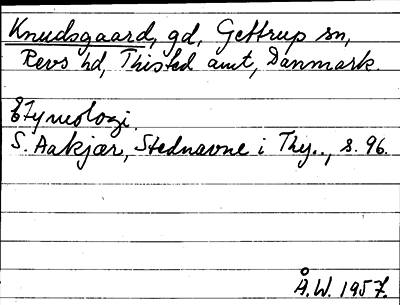 Knudsgaard, gd, Gettrup sn,
Revs hd, Thisted amt, Danmark.
Etymologi.
S. Aakjær, Stednavne i Thy.., s. 96.
Å.W. 1957.